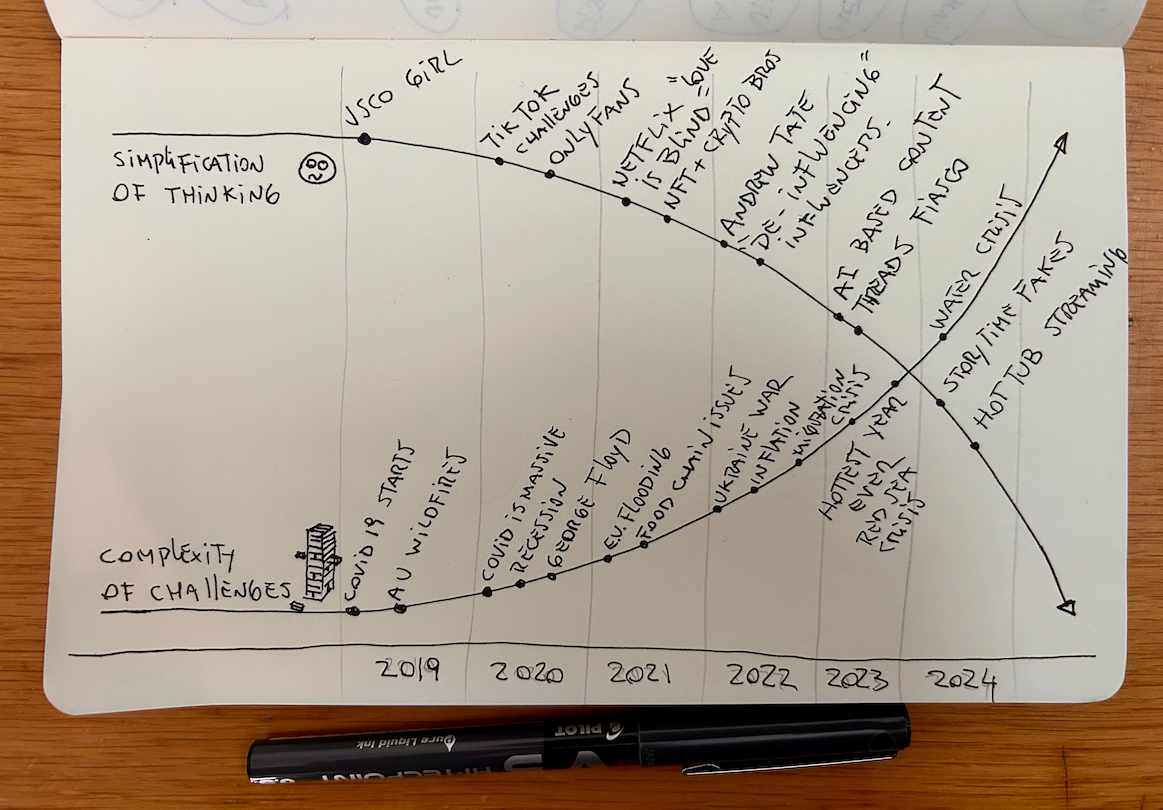 VSCO GIRL
TIKTOK
CHALLENGES
ONLYFANS
NETFLIX "LOVE
IS BLIND"
NFT + CRYPTO BROS
ANDREW TATE
"DE-INFLUENCING"
INFLUENCERS.
AI BASED CONTENT
THREADS FIASCO
STORYTIME FAKES
HOT TUB STREAMING
SIMPLIFICATION
OF THINKING
COMPLEXITY
OF CHALLENGES
COVID 19 STARTS
AU WILDFIRES
COVID IS MASSIVE
RECESSION
GEORGE FLOYD
EU. FLOODING
FOOD CHAIN ISSUES
UKRAINE WAR
INFLATION
MIGRATION
CRISIS
HOTTEST YEAR
EVER
RED SEA
CRISIS
WATER CRISIS
2019
2020
2021
2022
2023
2024
PILOT
Pure Liquid Ink